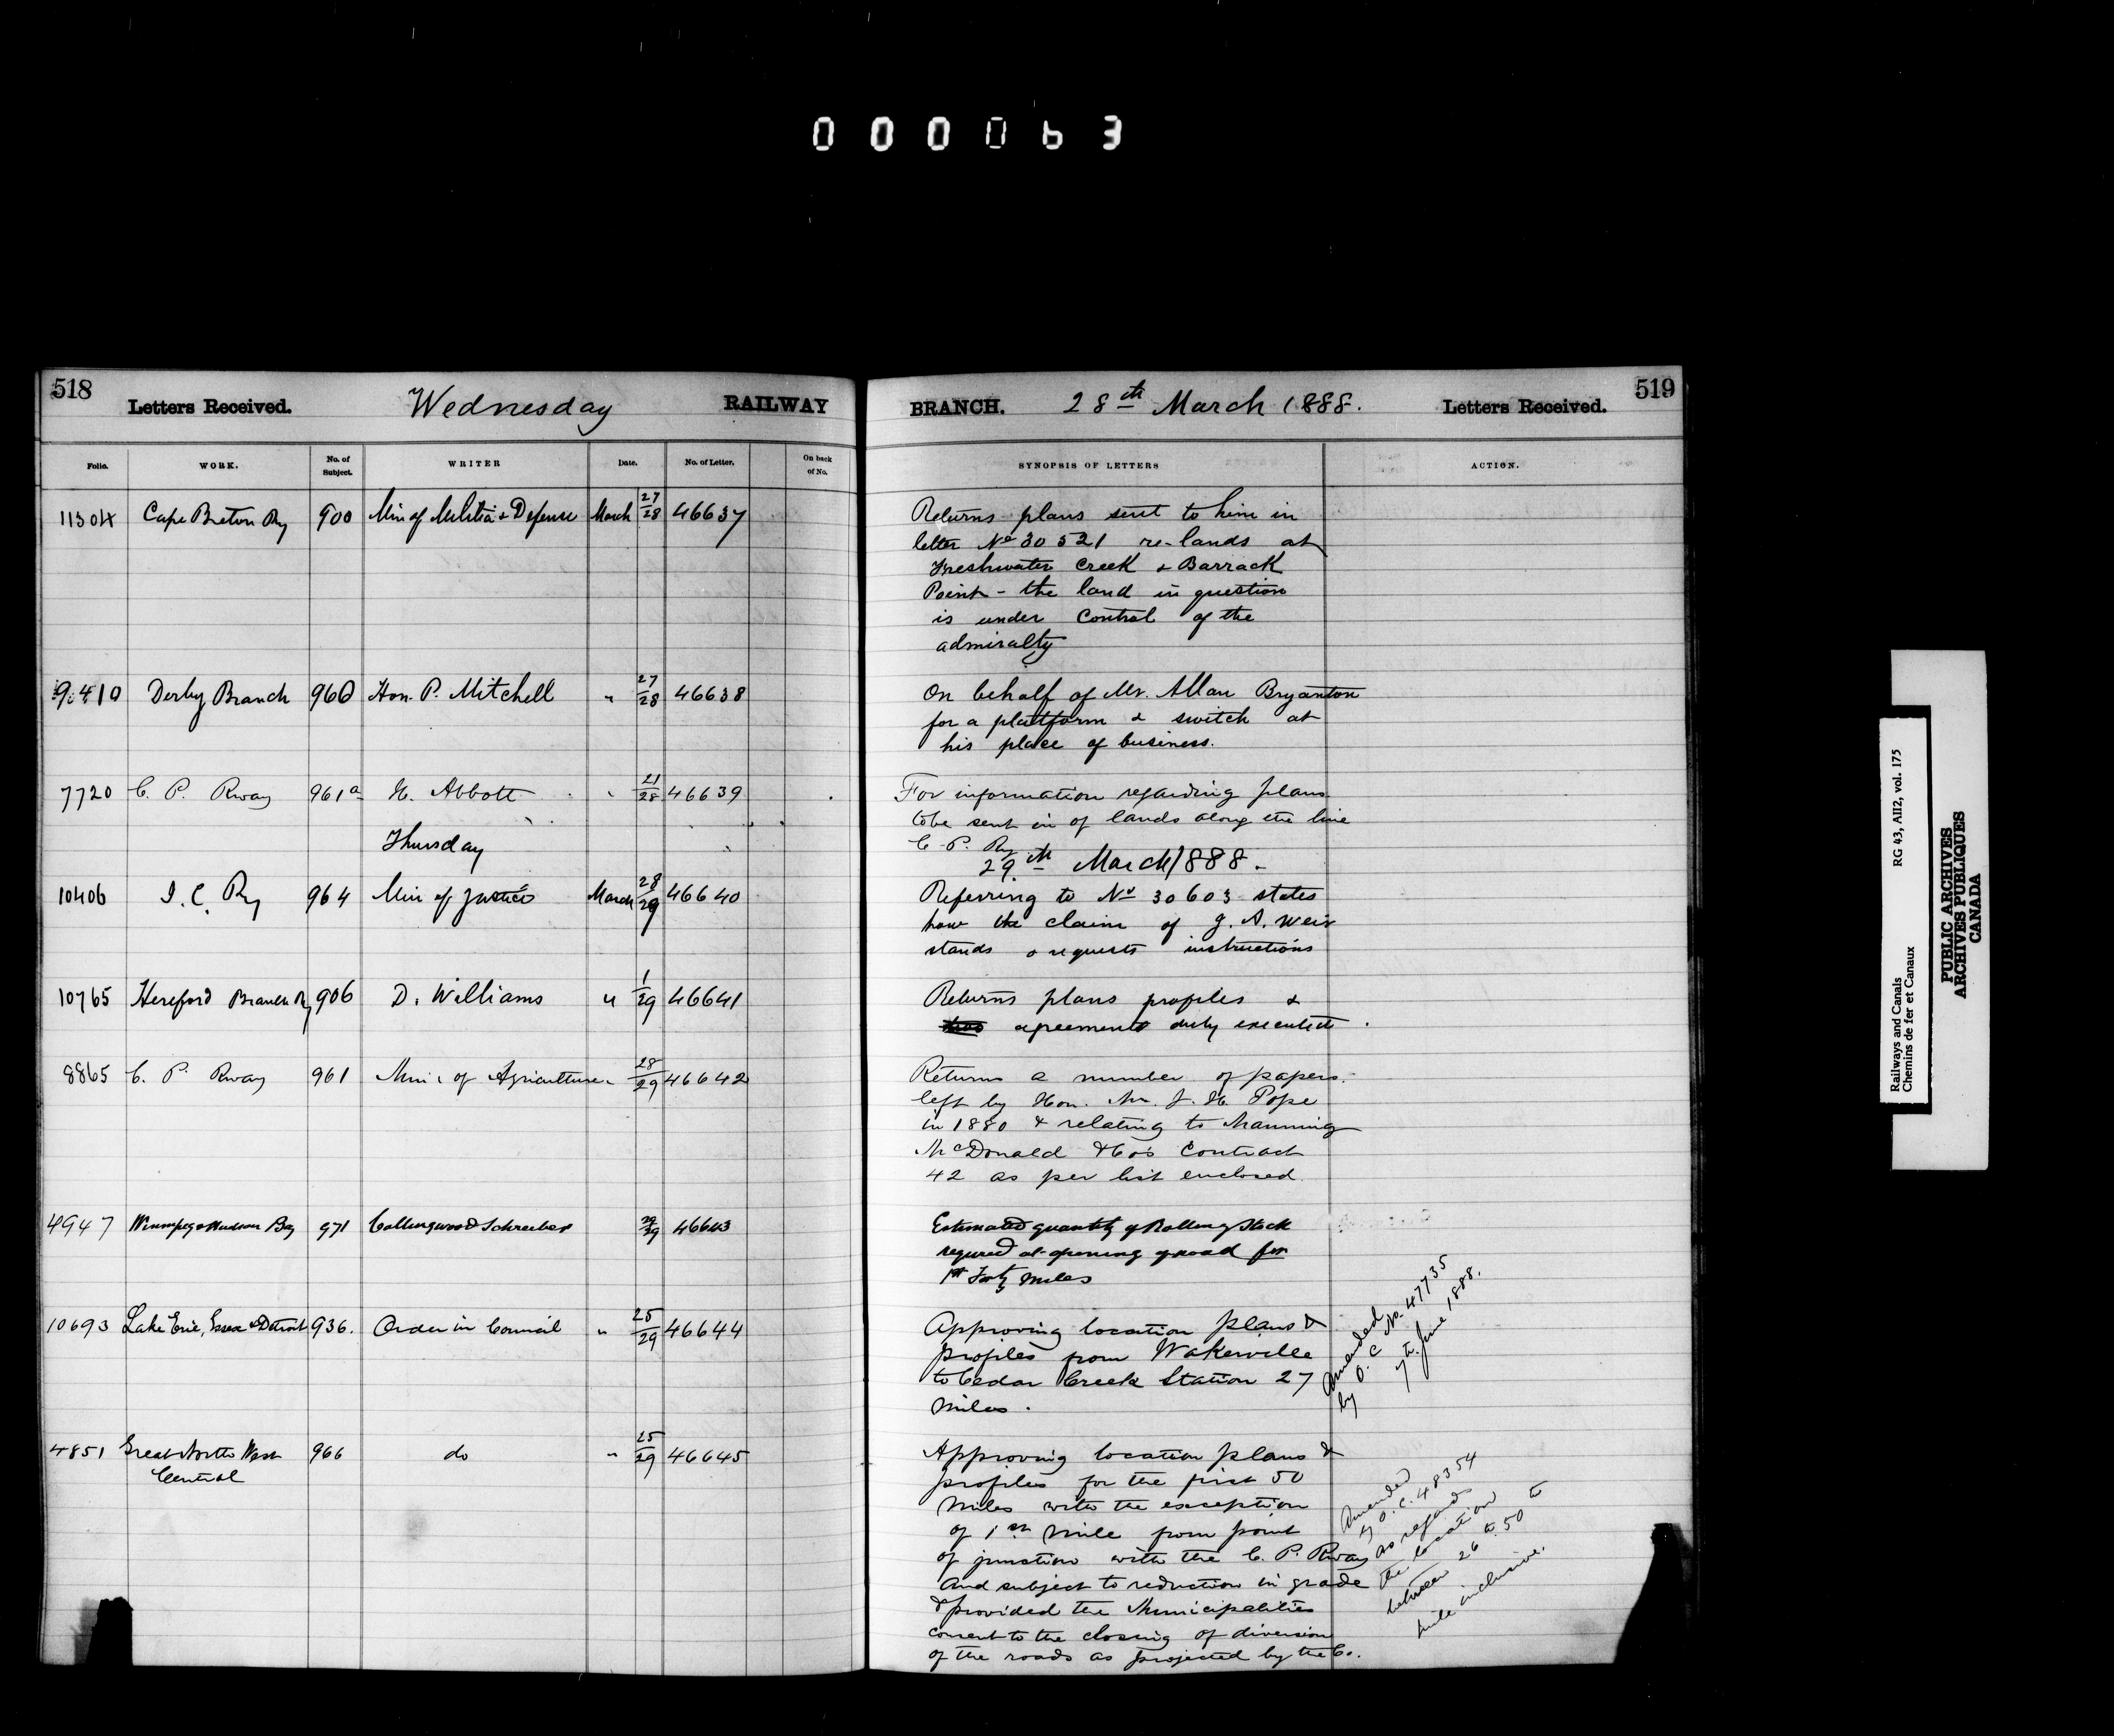 000063
518
Letters Received.
Wednesday
RAILWAY
BRANCH.
28th March 1888.
Letters Received.
519
Folio.
WORK.
No. of Subject.
WRITER
Date.
No. of Letter.
On back of No.
SYNOPSIS OF LETTERS
ACTION.
11304 Cape Breton Ry 900 Min of Militia & Defense March 27/28 46637
Returns plans sent to him in
letter No 30521 re-lands at
Freshwater Creek & Barrack
Point - the land in question
is under Control of the
admiralty
9410 Derby Branch 960 Hon. P. Mitchell " 27/28 46638
On behalf of Mr. Allan Bryanton
for a platform & switch at
his place of business.
7720 C. P. Rway 961a H. Abbott " 21/28 46639
For information regarding plans
to be sent in of lands along the line
C. P. Ry
Thursday
29th March 1888-
10406 I. C. Ry 964 Min of Justice March 28/29 46640
Referring to No 30603 states
how the claim of G. A. Weir
stands & requests instructions
10765 Hereford Branch Ry 906 D. Williams " 1/29 46641
Returns plans profiles &
agreements duly executed.
8865 C. P. Rway 961 Min. of Agriculture " 28/29 46642
Returns a number of papers
left by Hon. Mr. J. H. Pope
in 1880 & relating to Manning
McDonald & Co's Contract
42 as per list enclosed
4947 Winnipeg & Hudson Bay 971 Collingwood Schreiber 29/29 46643
Estimated quantity of Rolling Stock
required at opening of road for
1st Forty miles
10693 Lake Erie, Essex & Detroit 936. Order in Council " 25/29 46644
Approving location plans &
profiles from Wakerville
to Cedar Creek Station 27
miles.
Amended
by O. C No. 47735
7th June 1888.
4851 Great North West 966 do " 25/29 46645
Central
Approving location plans &
profiles for the first 50
miles with the exception
of 1st mile from point
of junction with the C. P. Rway
and subject to reduction in grade
& provided the Municipalities
consent to the closing of diversion
of the roads as projected by the Co.
Amended
by O. C. 48354
as regards
the location
between 26 to 50th
mile inclusive.
Railways and Canals RG 43, AII2, vol. 175
Chemins de fer et Canaux
PUBLIC ARCHIVES
ARCHIVES PUBLIQUES
CANADA